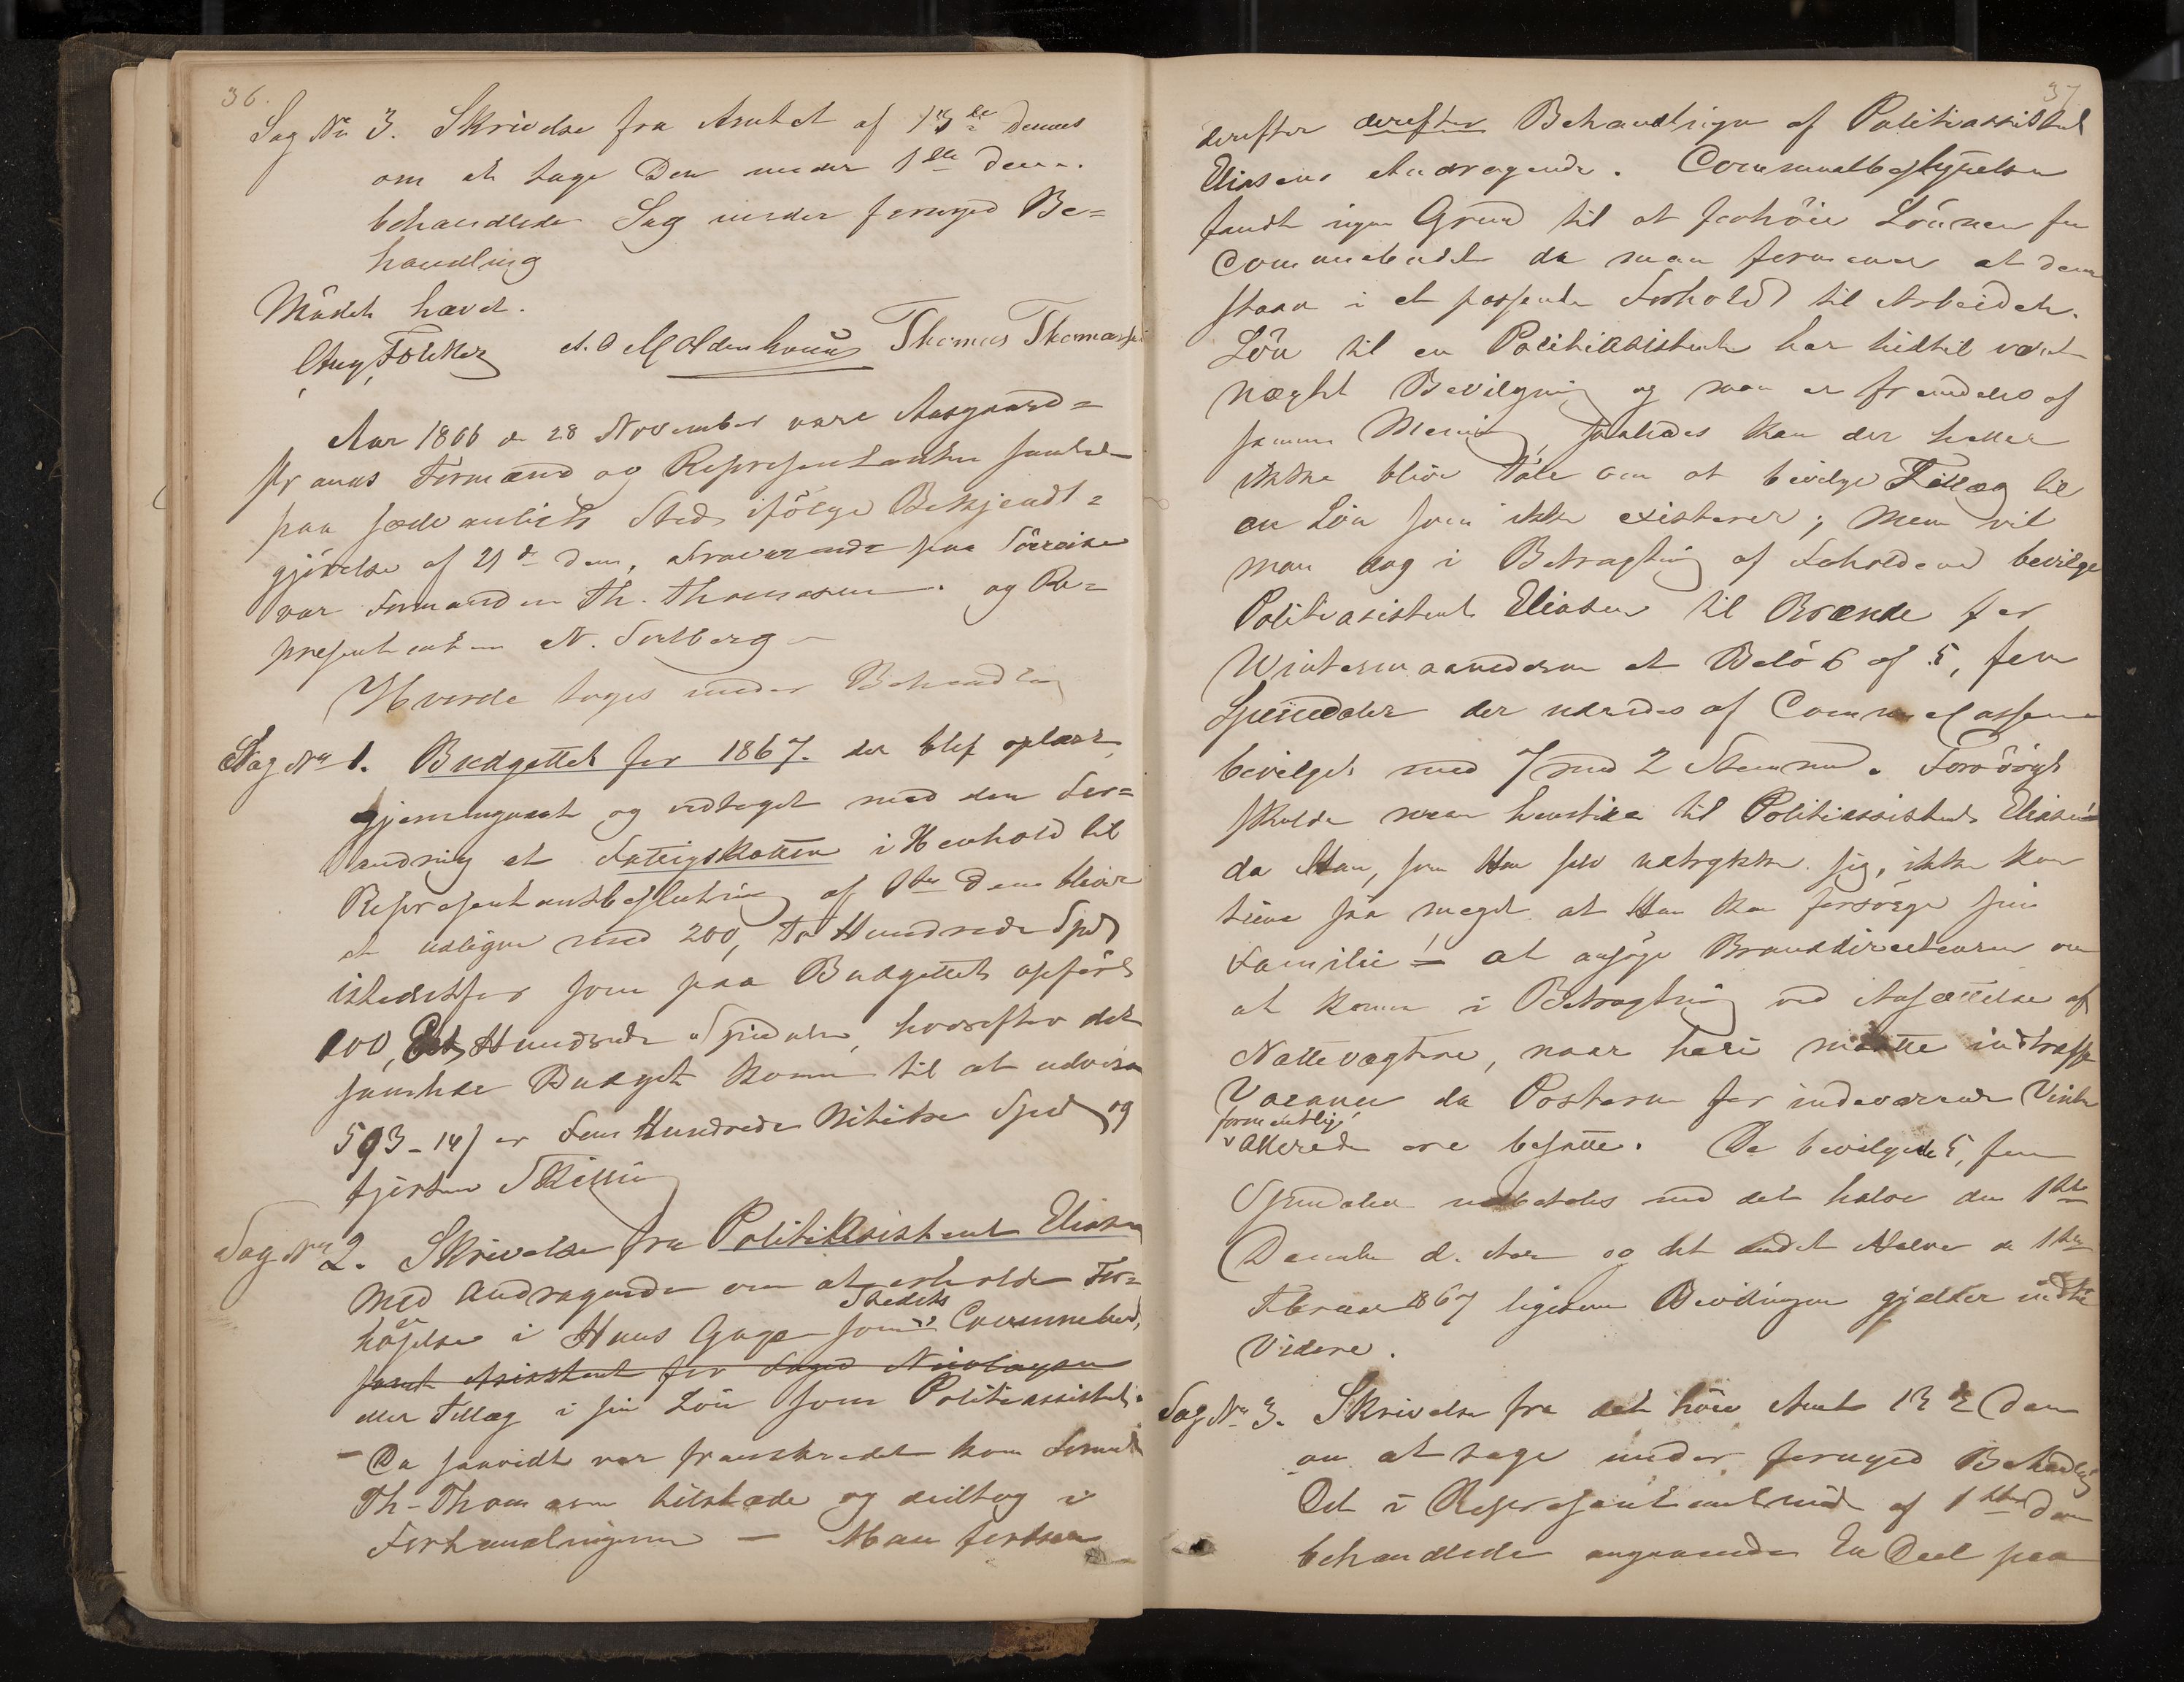 36.
Sag No 3. Skrivelse fra Amtet af 13de dennes
om at tage Den under 1ste denn.
behandlede Sag under fornyed Be=
handling
Mödet hævet.
Aug. A. O. Moldenhauer Thomas Thomassen
Aar 1866 d 28 November vare Aasgaard=
strands Formænd og Representanter samlet
paa sædvanlich Sted ifölge Bekjendt=
gjörelse af 21de dens, fraværende paa Söreise
var Formanden Th. Thomassen. og Re=
presentanten N. Solberg
Hvorda toges under Behandling
Sag No 1. Budgettet for 1867. der blef oplæst,
gjennemgaaet og vedtaget med den For=
andring at Fattigskatten i Henhold til
Representantbeslutning af 1ste dens bliver
at udligne med 200, To Hundrede Spd
istedetfor som paa Budgettet opfört
100, Et Hundrede Spedaler, hvorefter det
samlede Budget kommer til at udvise
593-14/ er Fem Hundrede Nititre Spd og
fjorten Skilling
Sag No 2. Skrivelse fra Politiasistent Eliasen
med Andragende om at erholde For=
Stedets
höjelse i Hans Gage som Communebud,
samt Assistent for Foged Nicolaysen
eller Tillæg i sin Lön som Politiassistent.
- Da saavidt var fremskredet kom Formand
Th. Thomasen tilstæde og deeltog i
Forhandlingerne — Man fortsatte
37
derefter derefter Behandlingen af Politiassistent
Eliasens Andragende. Communalbestyrelsen
fandt ingen Grund til at forhöie Lönnen for
Communebudet da man formener at denne
staar i et passende Forhold til Arbeidet.
Lön til en Politiassistent har hidtil været
nægtet Bevilgning og man er fremdeles af
samme Mening, saaledes kan der heller
ikke blive Tale om at bevilge Tillæg til
en Lön som ikke existerer; Men vil
man dog i Betragtning af Forholdene bevilge
Politiasistent Eliasen til Brænde for
Wintermaanederne et Belöb af 5, fem
Speciedaler der udredes af Communecassen
bevilget med 7 mod 2 Stemmer. Forövrigt
skulde man henstille til Politiassistent Eliasen
da Han, som Han selv udtrykker sig, ikke kan
tiene saa meget at Han kan forsörge sin
Familie — at ansöge Branddirecteuren om
at komme i Betragtning ved Ansættelse af
Nattevægtere, naar heri maatte indtræffe
Vacance da Posterne for indeværende Vinter
formentlig
allerede ere besatte. De bevilgede 5, fem
Spesidaler udbetales med det halve den 1ste
December d. Aar og det andet Halve d 1ste
Februar 1867 ligesom Bevilingen gjelder indtil
Videre.
Sag No 3. Skrivelse fra det höie Amt 13de dens
om at tage under fornyed Behandling
Det i Representantmöde af 1ste dens
behandlede angaaende En Deel paa